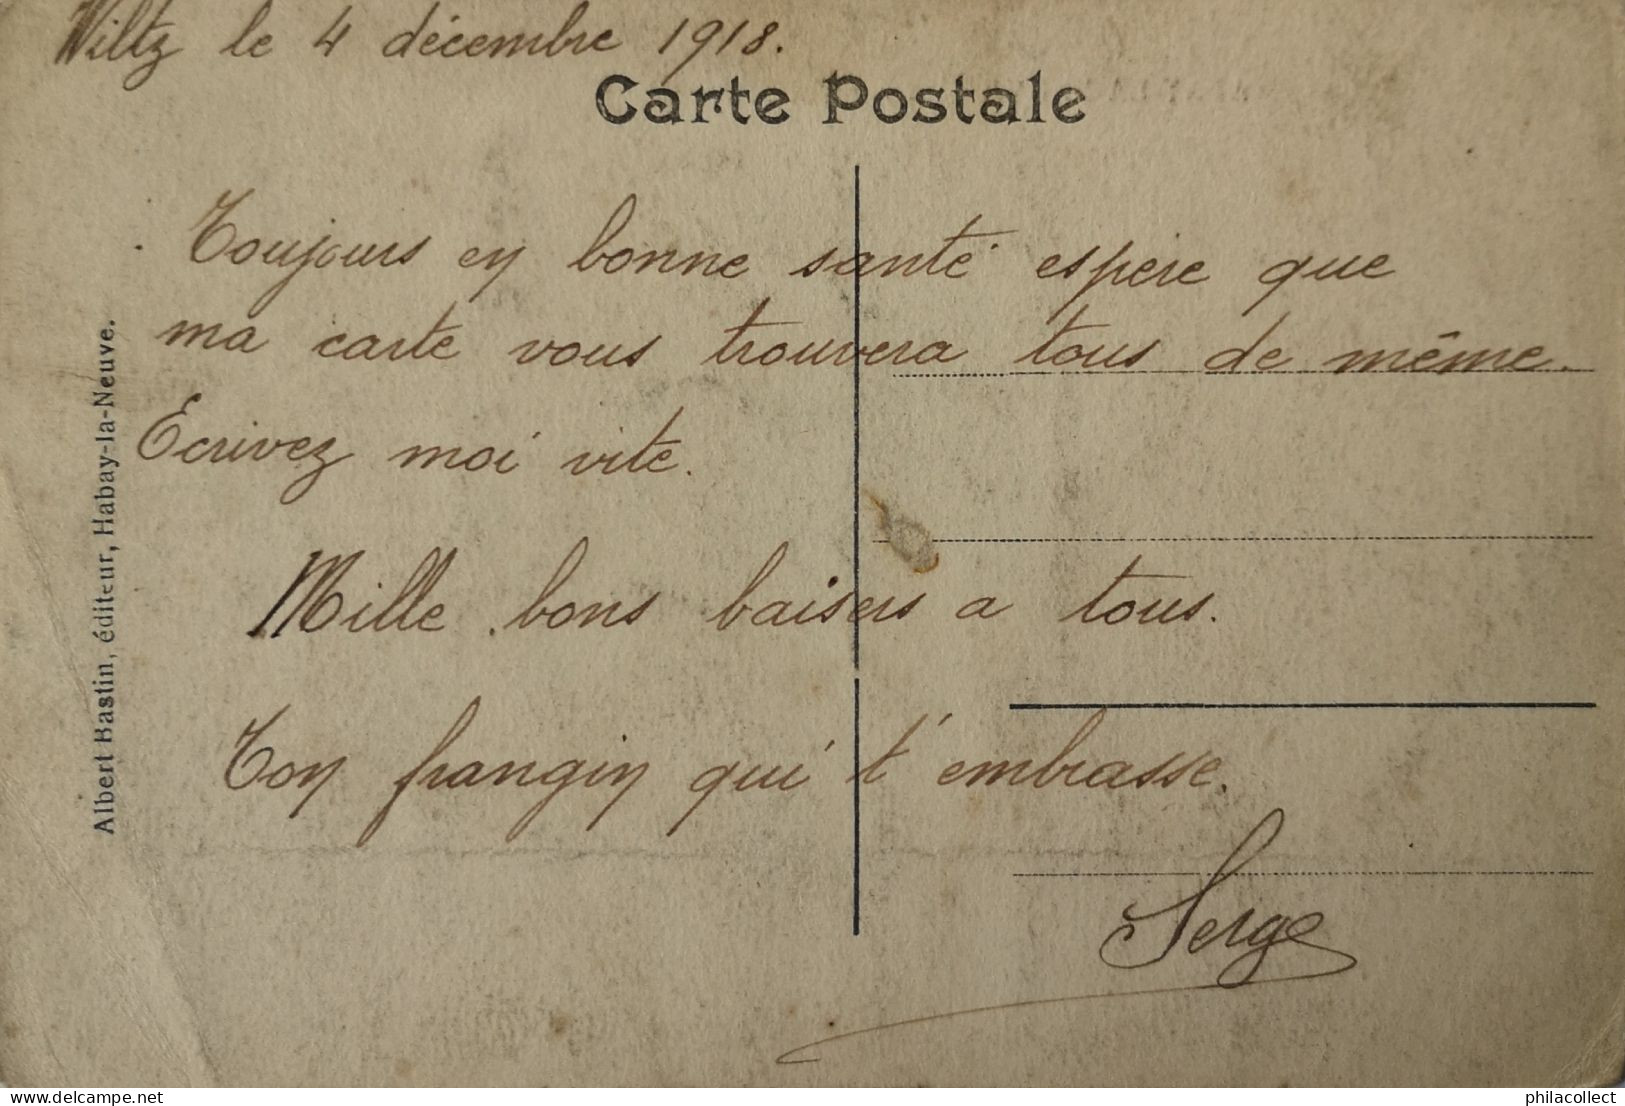 Wiltz le 4 décembre 1918.
Carte Postale
Toujours en bonne santé espère que
ma carte vous trouvera tous de même.
Ecrivez moi vite.
Mille bons baisers a tous.
Ton frangin qui t'embrasse.
Serge
Albert Bastin, éditeur, Habay-la-Neuve.
delcampe.net
philacollect